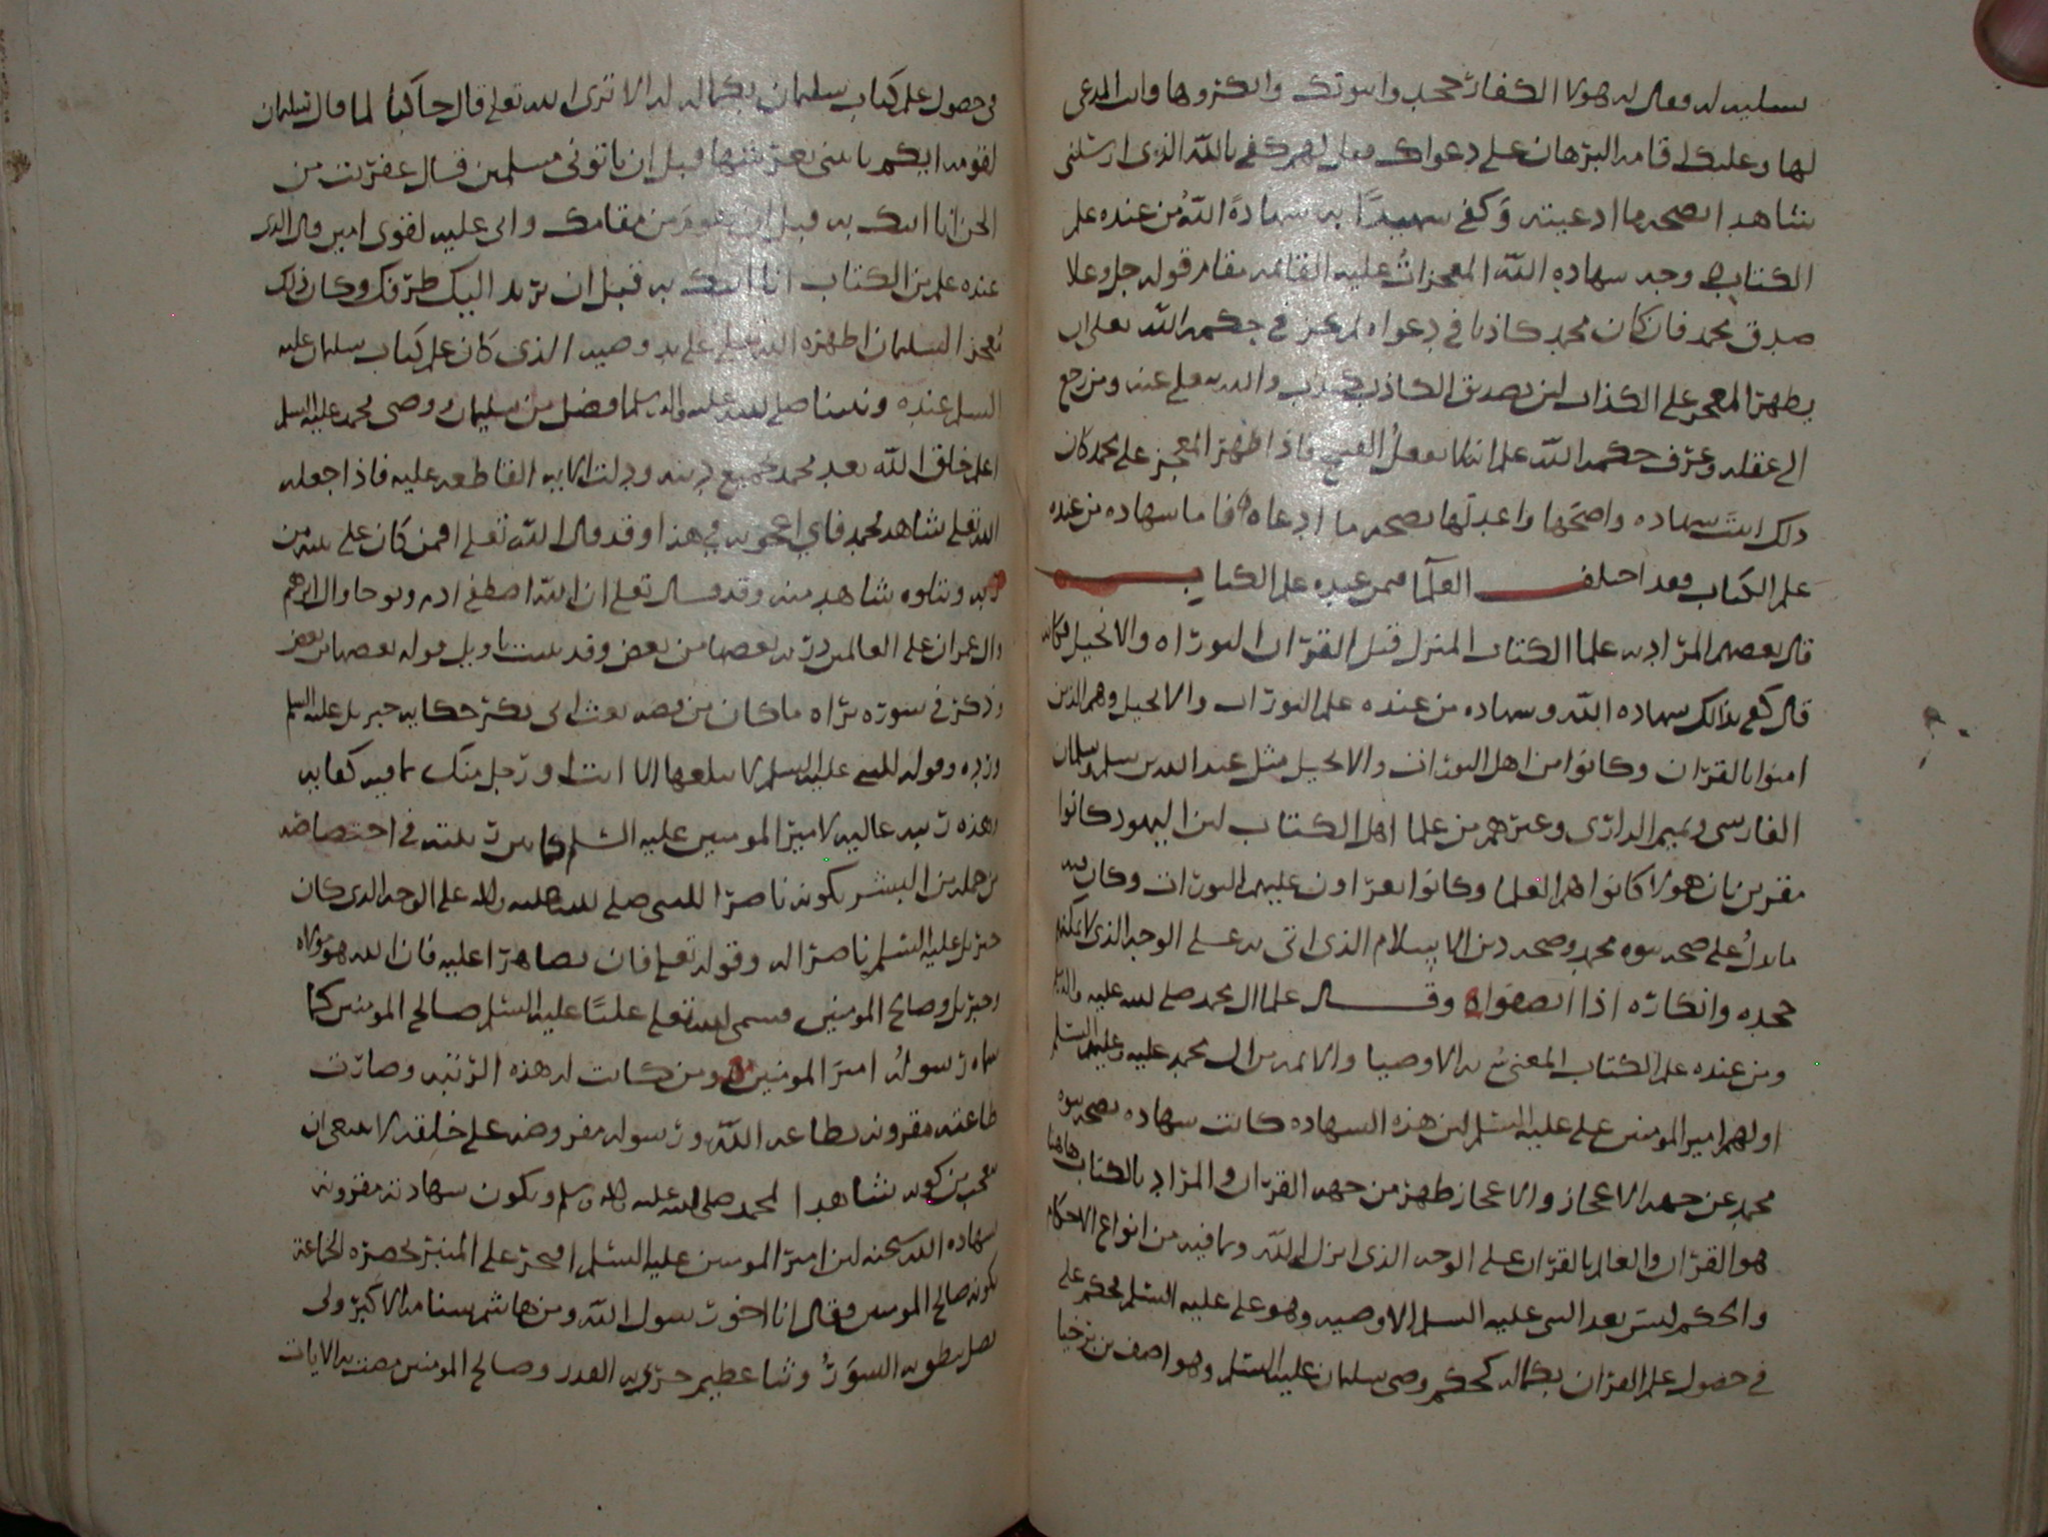 لله فقال له هولاء الكفار جحدوا نبوتك وانكروها وانت المدعى
لها وعليك اقامه البرهان على دعواك فقال لهم كفى بالله الذى ارسلنى
شاهدا بصحه ما ادعيته وكفى شهيدا به شهادة الله ومن عنده علم
الكتاب ووجه شهاده الله المعجزات عليه القائمه مقام قوله جل وعلا
صدق محمد فان كان محمد كاذبا فى دعواه لم يجز فى حكمه الله تعلى ان
يظهر المعجز على الكذاب لان تصديق الكاذب كذب والله تعلى عنه ومن رجع
الى عقله وعرف حكمه الله علم انه لا يفعل القبيح فاذا ظهر المعجز على محمد كان
ذلك ابين شهاده واصحها واعدلها بصحه ما ادعاه فاما شهاده من عنده
علم الكتاب فقد اختلف العلما فيمن عنده علم الكتاب
قال بعضهم المراد به علما الكتاب المنزل قبل القران التوراه والانجيل فكانه
قال كفى بذلك شهاده الله وشهاده من عنده علم التورات والانجيل وهم الذين
امنوا بالقران وكانوا من اهل التورات والانجيل مثل عبد الله بن سلم وسلمان
الفارسى وتميم الدارى وغيرهم من علما اهل الكتاب لان اليهود كانوا
مقرين بان هولا كانوا هم العلما وكانوا يقراون عليهم التورات وكان فيه
ما يدل على صحه نبوه محمد وصحه دين الاسلام الذى اتى به على الوجه الذى لا يمكنهم
جحده وانكاره اذا انصفوا وقال علما ال محمد صلى الله عليه واله
ومن عنده علم الكتاب المعنى به الاوصيا والائمه من ال محمد عليه وعليهم السلم
اولهم امير المومنين على عليه السلم لان هذه الشهاده كانت شهاده بصحه نبوه
محمد عن جهه الاعجاز والاعجاز ظهر من جهه القران والمراد بالكتاب هاهنا
هو القران والعالم بالقران على الوجه الذى انزل الله وما فيه من انواع الاحكام
والحكم ليس بعد النبى عليه السلم الا وصيه وهو على عليه السلم فحكم على
فى حصول علم القران بكماله كحكم وصى سليمان عليه السلم وهو اصف بن برخيا
فى حصول علم كتاب سليمان بكماله له الا ترى ان الله تعلى قال حاكيا لما قال سليمان
لقومه ايكم ياتينى بعرشها قبل ان ياتونى مسلمين قال عفريت من
الجن انا اتيك به قبل ان تقوم من مقامك وانى عليه لقوى امين قال الذى
عنده علم من الكتاب انا اتيك به قبل ان يرتد اليك طرفك وكان ذلك
معجزا لسليمان اظهره الله تعلى على يد وصيه الذى كان علم كتاب سليمان عليه
السلم عنده ونبينا صلى الله عليه واله وسلم افضل من سليمان ووصى محمد عليه السلم
اعلم خلق الله بعد محمد بجميع دينه ودلت الايه القاطعه عليه فاذا جعله
الله تعلى شاهدا لمحمد فاى اعجوبه فى هذا وقد قال الله تعلى افمن كان على بينه من
ربه ويتلوه شاهد منه وقد قال تعلى ان الله اصطفى ادم ونوحا وال ابرهيم
وال عمران على العالمين ذريه بعضها من بعض وقد بينت تاويل قوله بعضها من بعض
وذكر فى سوره براه ما كان من قصه بعث ابى بكر حكايه جبريل عليه السلم
ورده وقوله للنبى عليه السلم لا يبلغها الا انت او رجل منك ما فيه كفايه
وهذه رتبه عاليه لامير المومنين عليه السلم كما بين رتبته فى اختصاصه
من جمله من البشر بكونه ناصرا للنبى صلى الله عليه واله على الوجه الذى كان
جبريل عليه السلم ناصرا له وقوله تعلى فان تظاهرا عليه فان الله هو مولاه
وجبريل وصالح المومنين فسمى الله تعلى عليا عليه السلم صالح المومنين كما
سماه رسوله امير المومنين ومن كانت له هذه الرتبه وصارت
طاعته مقرونه بطاعه الله ورسوله مفروضه على خلقه لا ينبغى ان
تعجب من كونه شاهدا لمحمد صلى الله عليه واله وسلم وتكون شهادته مقرونه
بشهاده الله سبحنه لان امير المومنين عليه السلم افتخر على المنبر بحضره الجماعه
بكونه صالح المومنين فقال انا اخو رسول الله ومن هاشم سنامه الاكبر ولى
نطق به السور وثنا عظيم جرى به القدر وصالح المومنين مضت به الايات